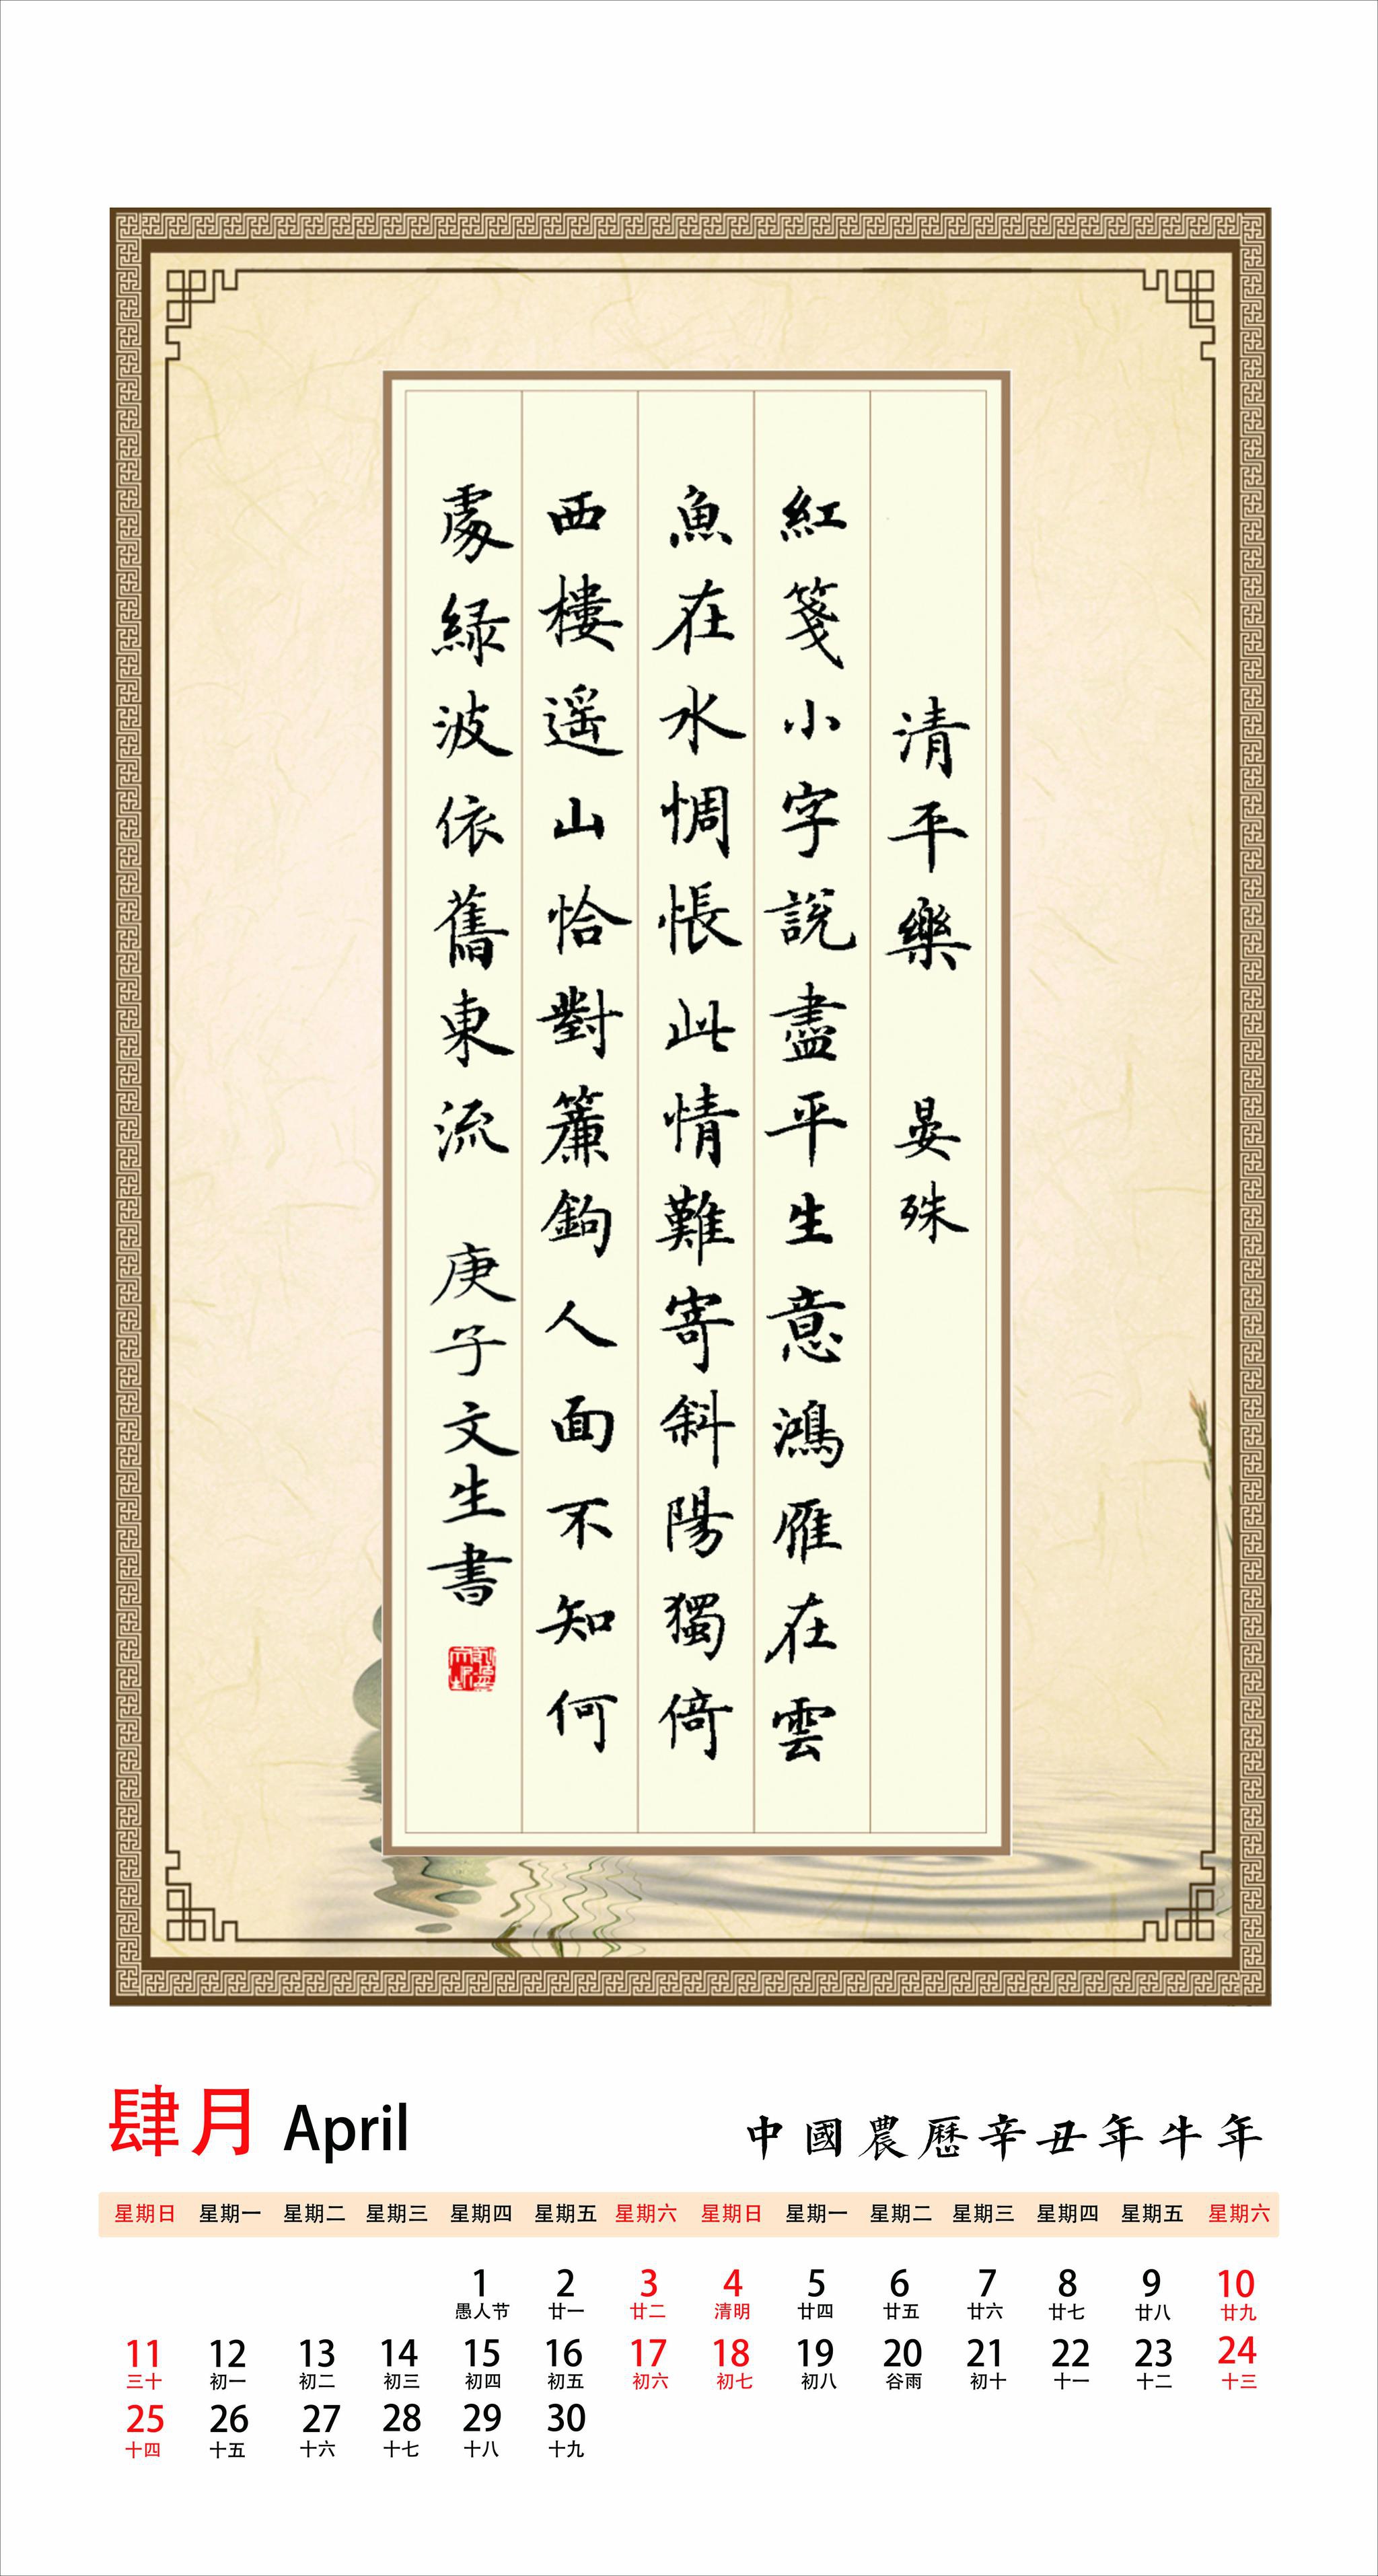 清平樂 晏殊
紅箋小字說盡平生意鴻雁在雲
魚在水惆悵此情難寄斜陽獨倚
西樓遥山恰對簾鉤人面不知何
處緑波依舊東流 庚子文生書
肆月 April
中國農歷辛丑年牛年
星期日 星期一 星期二 星期三 星期四 星期五 星期六 星期日 星期一 星期二 星期三 星期四 星期五 星期六
1 2 3 4 5 6 7 8 9 10
愚人节 廿一 廿二 清明 廿四 廿五 廿六 廿七 廿八 廿九
11 12 13 14 15 16 17 18 19 20 21 22 23 24
三十 初一 初二 初三 初四 初五 初六 初七 初八 谷雨 初十 十一 十二 十三
25 26 27 28 29 30
十四 十五 十六 十七 十八 十九